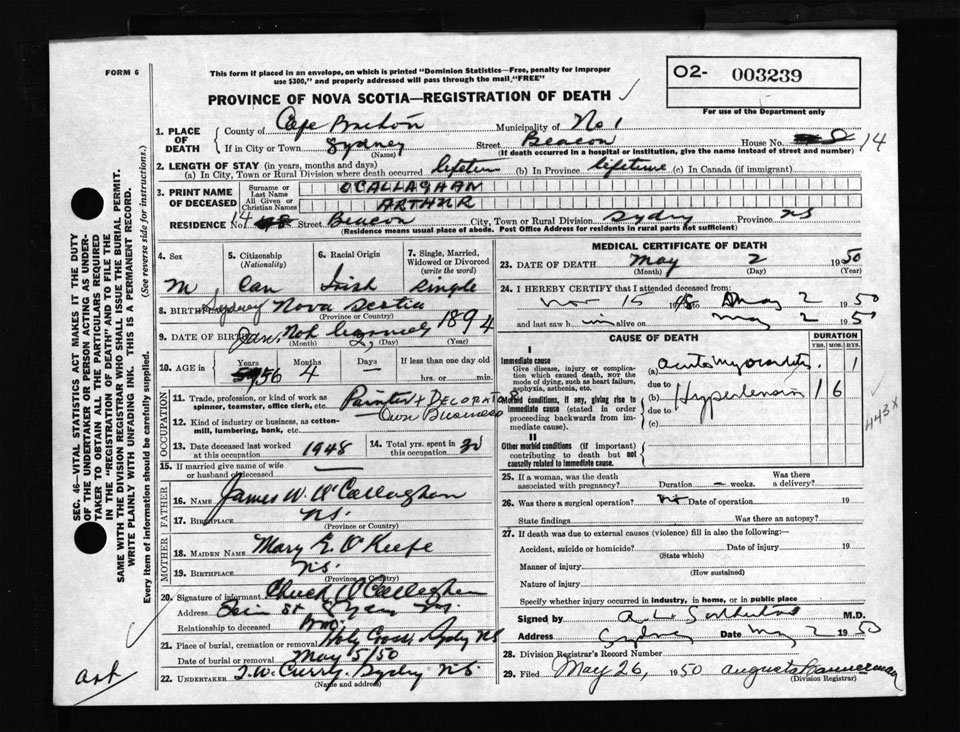 FORM 6
This form if placed in an envelope, on which is printed "Dominion Statistics—Free, penalty for improper
use $300," and properly addressed will pass through the mail "FREE"
02- 003239
For use of the Department only
PROVINCE OF NOVA SCOTIA—REGISTRATION OF DEATH
1. PLACE OF DEATH
County of Cape Breton Municipality of No 1
If in City or Town Sydney (Name) Street Beacon House No. 14
(If death occurred in a hospital or institution, give the name instead of street and number)
2. LENGTH OF STAY (in years, months and days)
(a) In City, Town or Rural Division where death occurred lifetime (b) In Province lifetime (c) In Canada (if immigrant)
3. PRINT NAME OF DECEASED
Surname or Last Name O'CALLAGHAN
All Given or Christian Names ARTHUR
RESIDENCE No. 14 Street Beacon City, Town or Rural Division Sydney Province NS
(Residence means usual place of abode. Post Office Address for residents in rural parts not sufficient)
4. Sex
M
5. Citizenship (Nationality)
Can
6. Racial Origin
Irish
7. Single, Married, Widowed or Divorced (write the word)
Single
8. BIRTHPLACE Sydney Nova Scotia
(Province or Country)
9. DATE OF BIRTH Jan. 1894
(Month) (Day) (Year)
10. AGE in
Years 56
Months 4
Days —
If less than one day old
hrs. or min.
OCCUPATION
11. Trade, profession, or kind of work as spinner, teamster, office clerk, etc. Painter & DECORATOR
12. Kind of industry or business, as cotton-mill, lumbering, bank, etc. Own Business
13. Date deceased last worked at this occupation 1948
14. Total yrs. spent in this occupation 30
15. If married give name of wife or husband of deceased —
FATHER
16. NAME James W. O'Callaghan
17. BIRTHPLACE NS.
(Province or Country)
MOTHER
18. MAIDEN NAME Mary E. O'Keefe
19. BIRTHPLACE NS.
(Province or Country)
20. Signature of informant Chuck O'Callaghan
Address St NS.
Relationship to deceased Bro.
21. Place of burial, cremation or removal Holy Cross, Sydney NS
Date of burial or removal May 5/50
22. UNDERTAKER T.W. Curry. Sydney NS.
(Name and address)
MEDICAL CERTIFICATE OF DEATH
23. DATE OF DEATH May 2 1950
(Month) (Day) (Year)
24. I HEREBY CERTIFY that I attended deceased from:
Nov 15 1948 to May 2 1950
and last saw him alive on May 2 1950
CAUSE OF DEATH
DURATION
YRS. MOS. DYS.
I
Immediate cause
Give disease, injury or complication which caused death, not the mode of dying, such as heart failure, asphyxia, asthenia, etc.
(a) 1
due to
Morbid conditions, if any, giving rise to immediate cause (stated in order proceeding backwards from immediate cause).
(b) Hypertension 1 6
due to
(c)
443X
II
Other morbid conditions (if important) contributing to death but not causally related to immediate cause.
25. If a woman, was the death associated with pregnancy? Duration — weeks. Was there a delivery?
26. Was there a surgical operation? No Date of operation 19
State findings Was there an autopsy?
27. If death was due to external causes (violence) fill in also the following:—
Accident, suicide or homicide? Date of injury 19
(State which)
Manner of injury
(How sustained)
Nature of injury
Specify whether injury occurred in industry, in home, or in public place
Signed by A. L. Sutherland M.D.
Address Sydney Date May 2 1950
28. Division Registrar's Record Number
29. Filed May 26, 1950 Augusta Bannerman
(Division Registrar)
SEC. 46—VITAL STATISTICS ACT MAKES IT THE DUTY
OF THE UNDERTAKER OR PERSON ACTING AS UNDER-
TAKER TO OBTAIN ALL THE PARTICULARS REQUIRED
IN THE "REGISTRATION OF DEATH" AND TO FILE THE
SAME WITH THE DIVISION REGISTRAR WHO SHALL ISSUE THE BURIAL PERMIT.
WRITE PLAINLY WITH UNFADING INK. THIS IS A PERMANENT RECORD.
Every item of information should be carefully supplied. (See reverse side for instructions.)